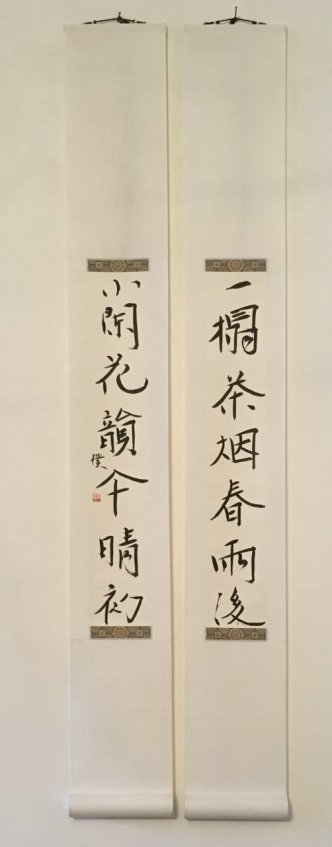 一榻茶烟春雨後
小闌花韻午晴初
僕